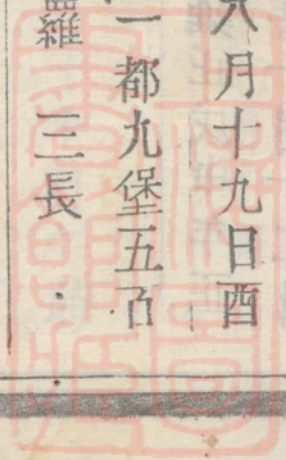 八月十九日酉
一都九堡五百
羅 三長